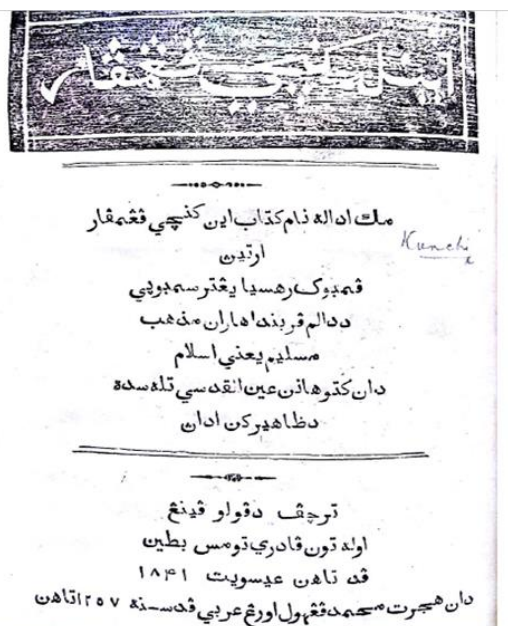 اينله كنچي ڤڠمڤار
مك اداله نام كتاب اين كنچي ڤڠمڤار
Kunchi
ارتين
ڤمبوك رهسيا يڠ ترسمبوڽي
ددالم ڤربنداهاران مذهب
مسليم يعني اسلام
دان كتوهانن عين القدسي تله سده
دظاهيركن ادان
ترچڤ دڤولو ڤينڠ
اوله تون قادري تومس بطين
ڤد تاهن عيسويت ١٨٤١
دان هجرت محمد ڤڠهول اورڠ عربي ڤد سنه ١٢٥٧ تاهن